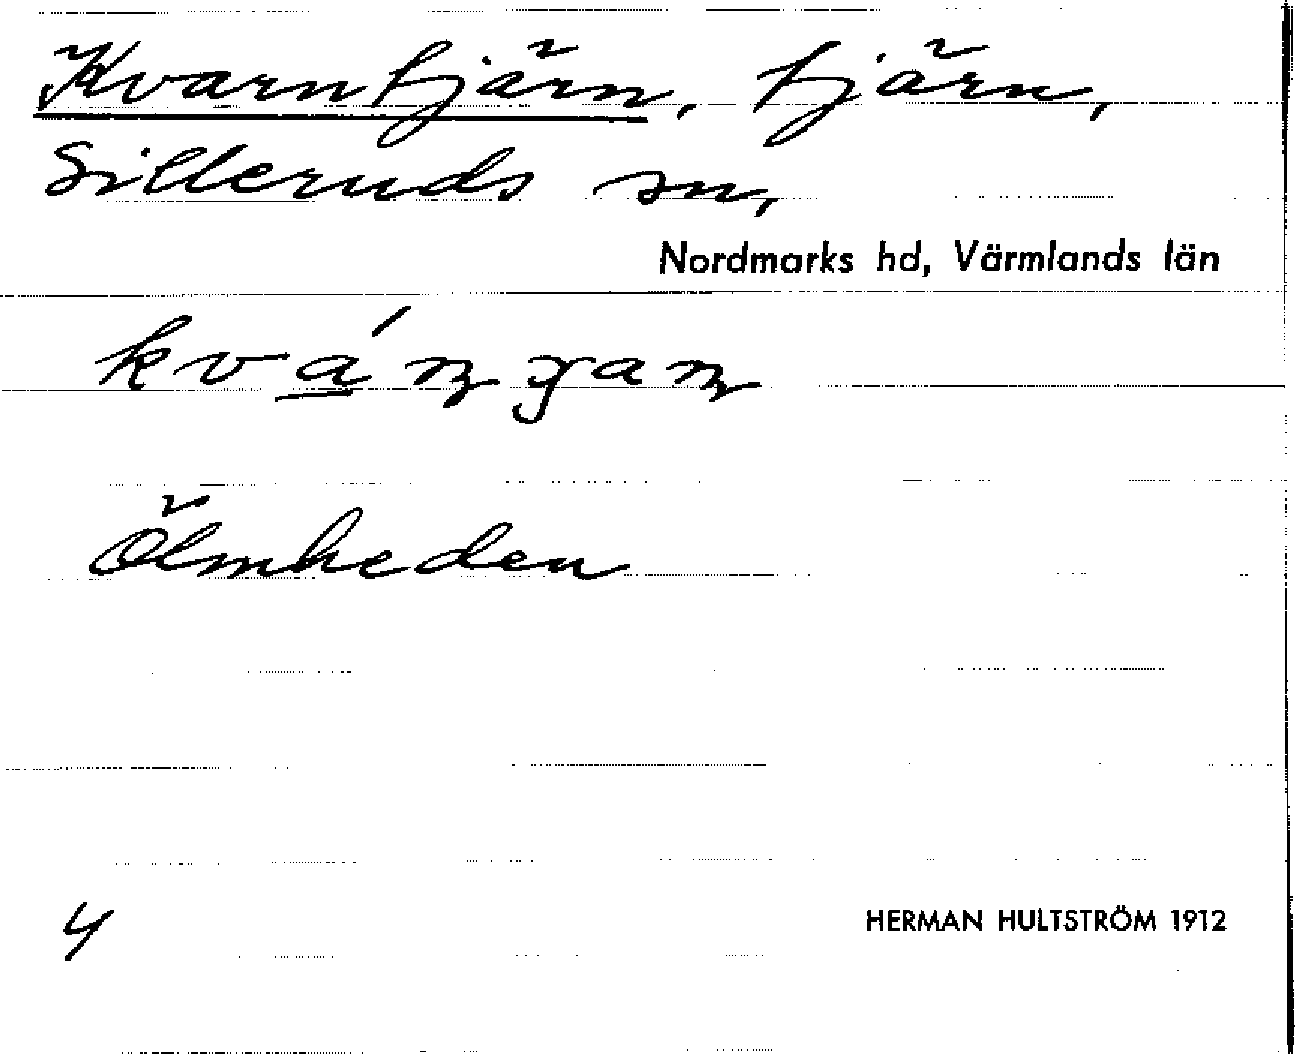 Kvarntjärn, tjärn,
Silleruds sn,
Nordmarks hd, Värmlands län
Ölmheden
4
HERMAN HULTSTRÖM 1912